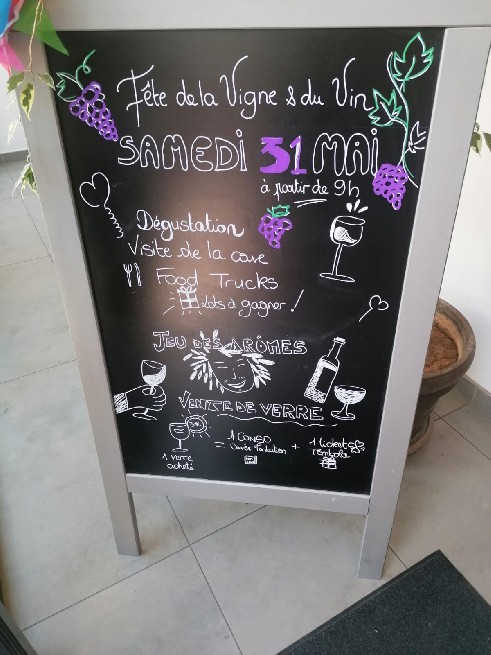 Fête de la Vigne & du Vin
SAMEDI 31 MAI
à partir de 9h
Dégustation
Visite de la cave
Food Trucks
lots à gagner !
JEU DES ARÔMES
VENTE DE VERRE
1 verre acheté
= 1 CONSO + 1 ticket
tombola